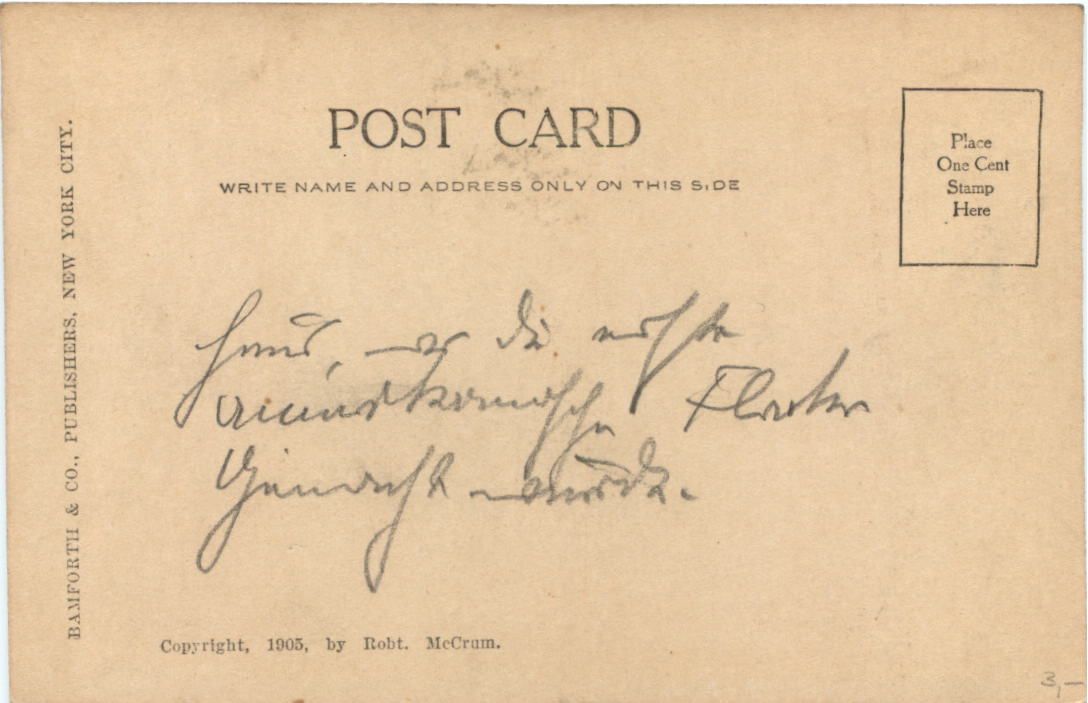 POST CARD
WRITE NAME AND ADDRESS ONLY ON THIS SIDE
Place
One Cent
Stamp
Here
BAMFORTH & CO., PUBLISHERS, NEW YORK CITY.
Haus, wo die erste
amerikanische
Gemacht wurde.
Copyright, 1905, by Robt. McCrum.
3,—